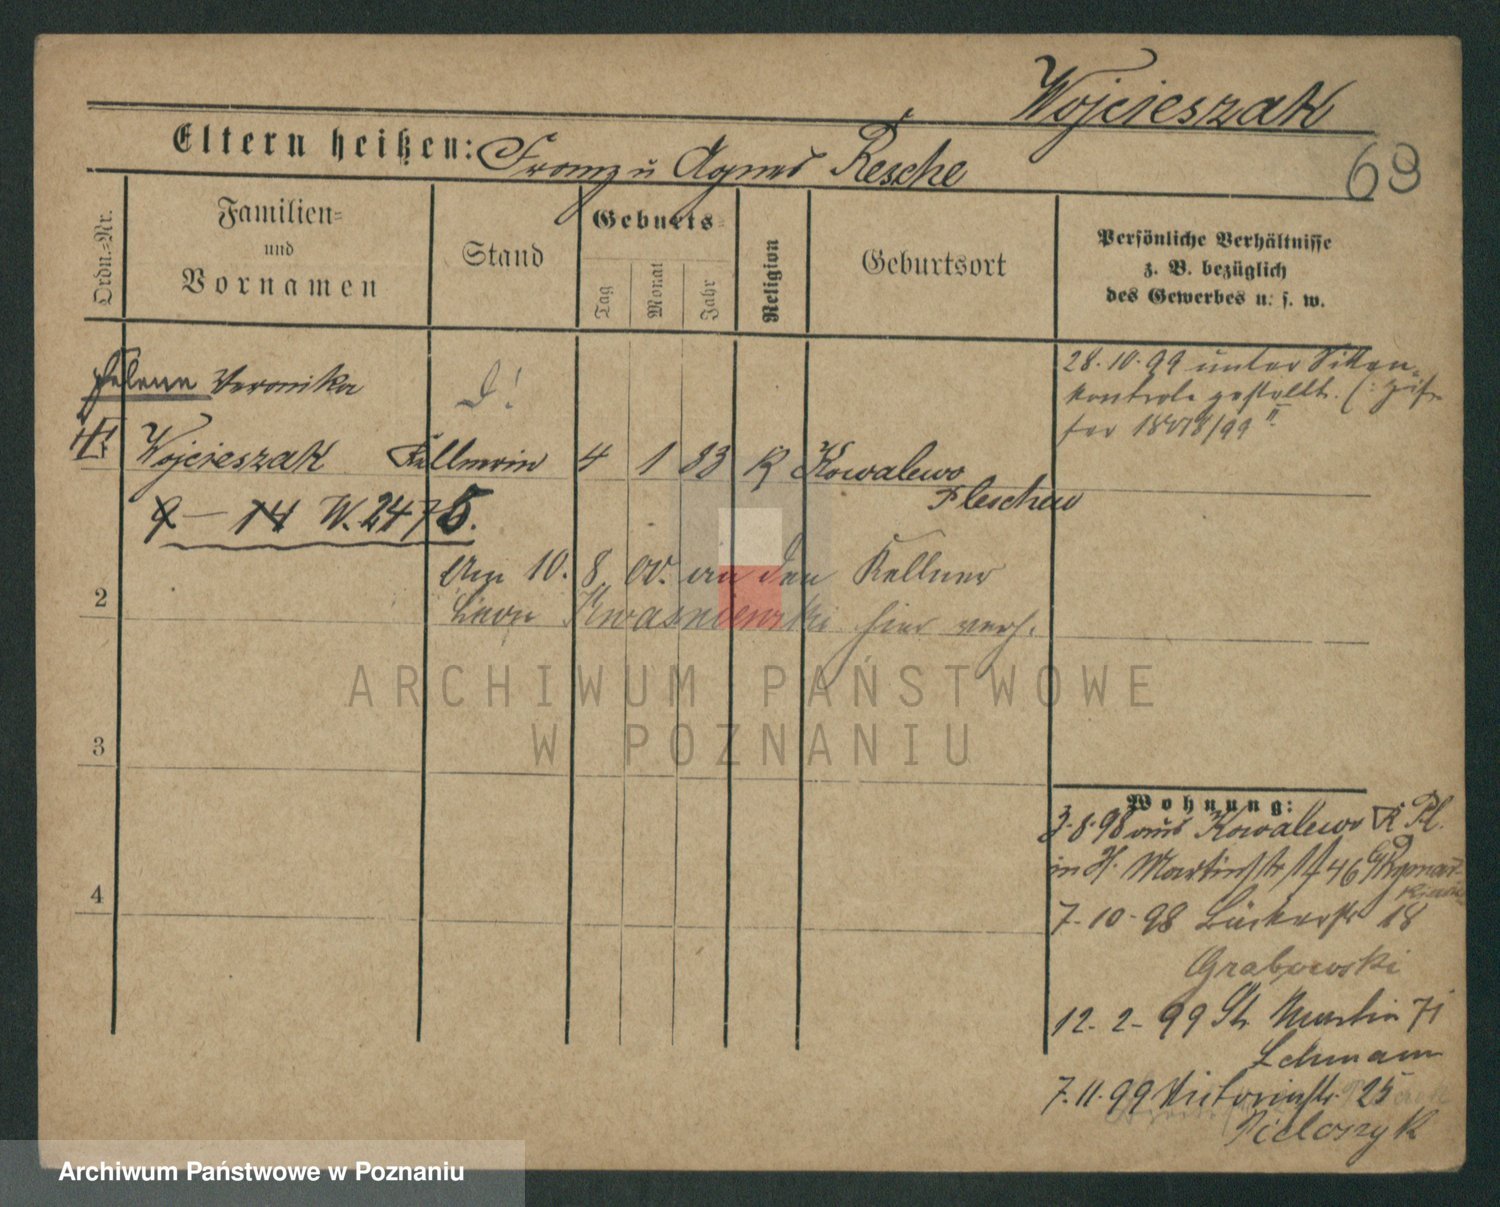 Wojcieszak
68
Eltern heißen: Franz u Agnes Resche
Ordn.=Nr.
Familien=
und
Vornamen
Stand
Geburts=
Tag
Monat
Jahr
Religion
Geburtsort
Persönliche Verhältnisse
z. B. bezüglich
des Gewerbes u. s. w.
Helene Veronika
D!
28.10.99 unter Sitten=
kontrole gestellt. (: Zif=
fer 18078/99 II.
Wojcieszak Kellnerin 4 1 83 K Kowalewo
Pleschew
9 — 14 W. 2475.
Am 10. 8. 00. an den Kellner
2
Leon Kwasniewski hier verh.
ARCHIWUM PAŃSTWOWE
W POZNANIU
3
Wohnung:
3.8.98 aus Kowalewo K Pl.
in St. Martinstr 46
4
7.10.98 Bäckerstr 18
Grabowski
12.2.99 St. Martin 71
Lehmann
7.11.99 Victoriastr. 25
Pieloszyk
Archiwum Państwowe w Poznaniu